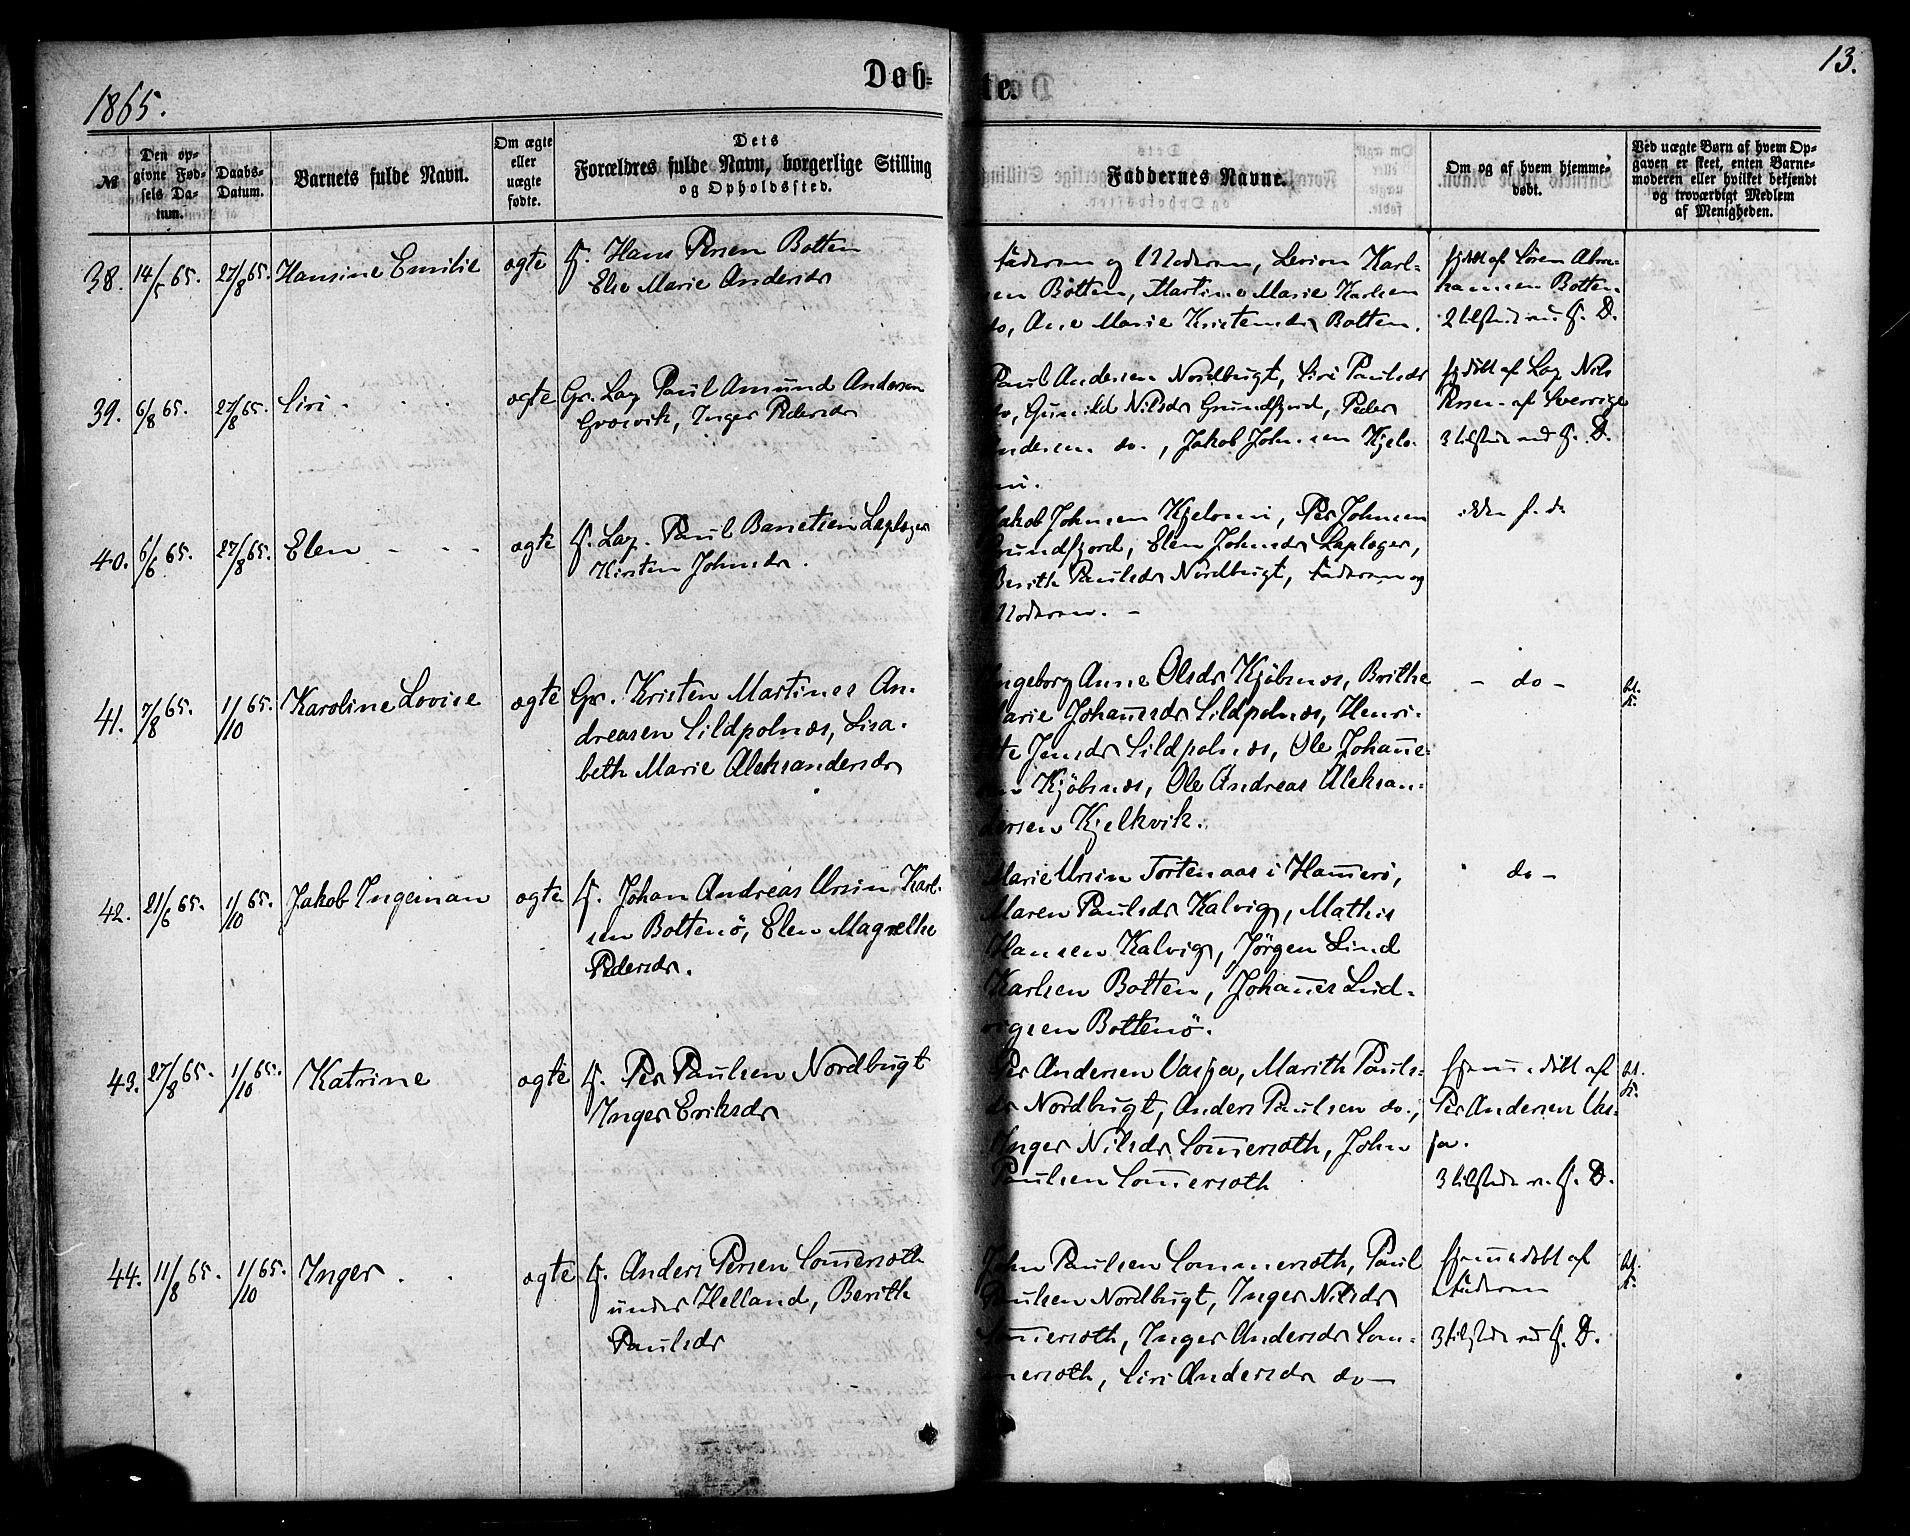 1865.
Døb-
te.
13.
№
Den op-
givne Fød-
sels Da-
tum.
Daabs-
Datum.
Barnets fulde Navn.
Om ægte
eller
uægte
fødte.
Dets
Forældres fulde Navn, borgerlige Stilling
og Opholdssted.
Faddernes Navne.
Om og af hvem hjemme-
døbt.
Ved uægte Børn af hvem Op-
gaven er skeet, enten Barne-
moderen eller hvilket bekjendt
og troværdigt Medlem
af Menigheden.
38. 14/5 65. 27/8 65. Hansine Emilie ægte
F. Hans Persen Botten
Else Marie Andersdr
Faderen og Moderen, Karl-
sen Botten, Martine Marie Karlsen
do, Ane Marie Kristensdr Botten.
hjdøbt af Sören Abra-
hamsen Botten.
39. 6/8 65. 27/8 65. Siri ægte
Gr. Lap Paul Amund Andersen
Groevik, Inger Pedersdr
Paul Andersen Nordbugt, Siri Paulsdr
do, Gunild Nilsdr Grundfjord, Peder
Andersen do., Jakob Johnsen Kjelo-
mi.
hjdöbt af Lap Nils
Persen af Sverrige
40. 6/6 65. 27/8 65. Elen - - - ægte
F. Lap. Paul Banetsen Laplæger
Kirsten Johnsdr.
Jakob Johnsen Kjelomi, Per Johnsen
Grundfjord, Elen Johnsdr Laplæger,
Berith Paulsdr Nordbugt, Faderen og
Moderen. -
41. 7/8 65. 1/10 65. Karoline Lovise ægte
Gr. Kristen Martines An-
dreasen Sildpolnæs, Lisa-
beth Marie Aleksandersdr
Ingeborg Anne Olsdr Kjöbnæs, Brithe
Marie Johansdr Sildpolnæs, Henri-
ete Jensdr Sildpolnæs, Ole Johane-
sen Kjöbnæs, Ole Andreas Aleksan-
dersen Kjelkvik.
- do -
42. 21/6 65. 1/10 65. Jakob Ingeman ægte
F. Johan Andreas Ursin Karl-
sen Bottenö, Elen Magrethe
Pedersdr.
Marie Ursin Tortenaas i Hamerö,
Maren Paulsdr Kalvig, Mathis
Hansen Kalvig, Jörgen Lind
Karlsen Botten, Johanes Lud-
vigsen Bottenö.
do -
43. 27/8 65. 1/10 65. Katrine ægte
F. Per Paulsen Nordbugt
Inger Eriksdr
Per Andersen Vasja, Marith Pauls-
dr Nordbugt, Anders Paulsen do.,
Inger Nilsdr Somersæth, John
Paulsen Somersæth
hjemmedöbt af
Per Andersen Vas-
ja.
3 tilstede v. H. D.
44. 11/8 65. 1/10 65. Inger ægte
F. Anders Persen Somersæth
under Helland, Berith
Paulsdr
John Paulsen Sommersæth, Paul
Paulsen Nordbugt, Inger Nilsdr
Somersæth, Inger Andersdr Som-
mersæth, Siri Andersdr do -
hjemmedöbt af
Faderen
3 tilstede ved H. D.